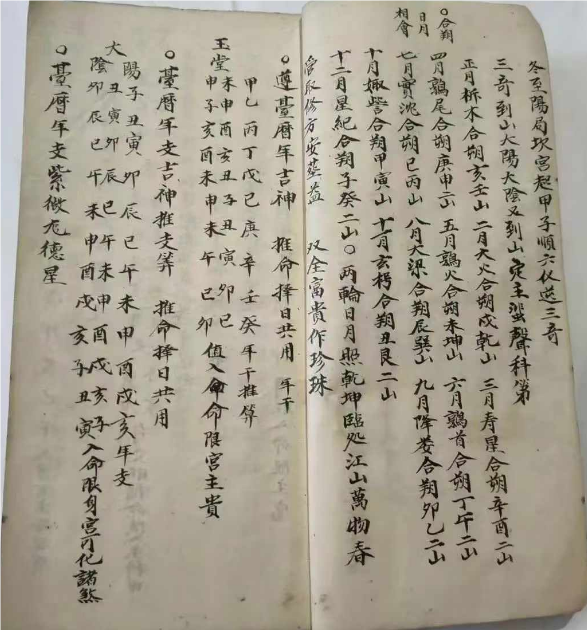 冬至陽局坎宮起甲子順六仪逆三奇
三奇到山太陽太陰又到山定主蜚聲科第
正月析木合朔亥壬山 二月大火合朔戌乾山 三月寿星合朔辛酉二山
四月鶉尾合朔庚申二山 五月鶉火合朔未坤山 六月鶉首合朔丁午二山
七月實沈合朔巳丙山 八月大梁合朔辰巽山 九月降娄合朔卯乙二山
十月娵訾合朔甲寅山 十一月玄枵合朔丑艮二山
十二月星紀合朔子癸二山○两輪日月照乾坤臨処江山萬物春
○合朔
日月
相會
修方安葬益 双全富貴作珍珠
○遵臺曆年吉神 推命择日共用 年干
甲乙丙丁戊己庚辛壬癸年干推算
玉堂未申酉亥丑子丑寅卯巳
申子亥酉未申未午巳卯值入命命限宮主貴
○臺曆年支吉神推支算 推命择日共用
太陽子丑寅卯辰巳午未申酉戌亥年支
丑寅卯辰巳午未申酉戌亥子
太陰卯辰巳午未申酉戌亥子丑寅入命限身宮可化諸煞
○臺曆年支紫微龙德星